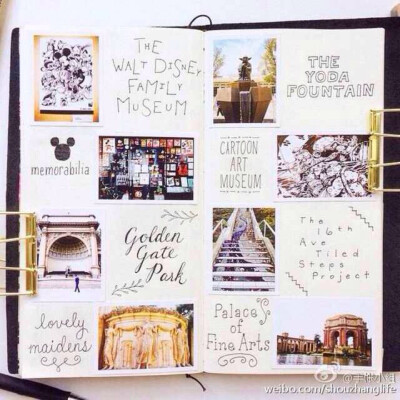 THE
WALT DISNEY
FAMILY
MUSEUM
memorabilia
Golden
Gate
Park
lovely
maidens
THE
YODA
FOUNTAIN
CARTOON
ART
MUSEUM
The
16th
Ave
Tiled
Steps
Project
Palace
of
Fine Arts
weibo.com/shouzhanglife